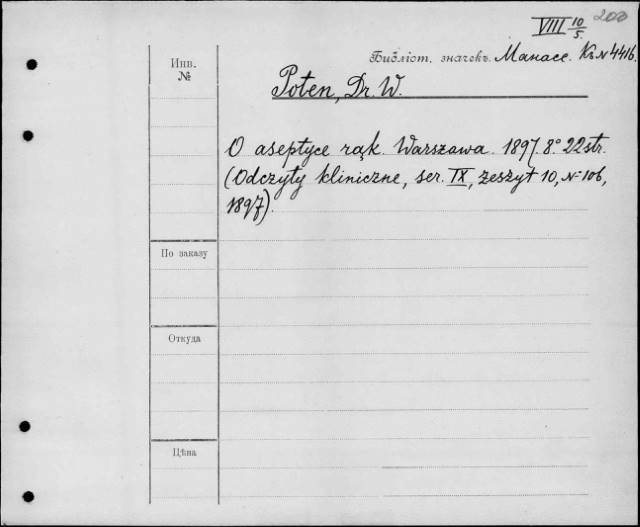 VIII 10/5. 200
Библіот. значекъ. Манасе. Къ № 4416.
Инв.
№
Poten, Dr. W.
O aseptyce rąk. Warszawa. 1897. 8° 22 str.
(Odczyty kliniczne, ser. IX, zeszyt 10, № 106,
1897).
По заказу
Откуда
Цѣна